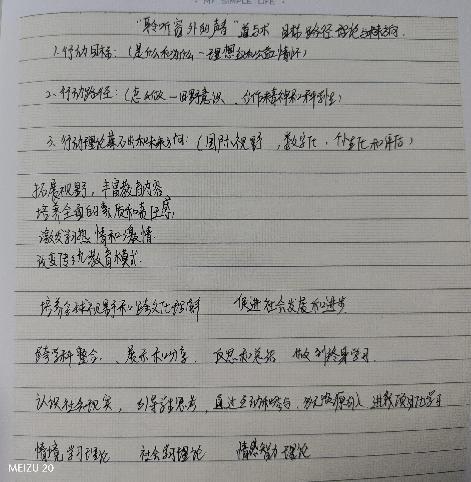 MY SIMPLE LIFE
"聆听窗外的声音" 道与术 目标 路径 理论与方向
1.行动目标：（是什么和为什么一理想和公益情怀）
2.行动路径：（怎么做一田野意识、合作精神和科学性）
3.行动理论基石和未来方向：（国际视野，数字化，个性化和评估）
拓展视野，丰富教育内容
培养全面的素质和责任感，
激发学习热情和激情
改变传统教育模式.
培养全球视野和跨文化理解 促进社会发展和进步
跨学科整合、展示和分享、反思和总结 做到终身学习
认识社会现实，引导学生思考，通过互动和参与，进我项目式学习
情境学习理论 社会学习理论 情感智力理论
MEIZU 20